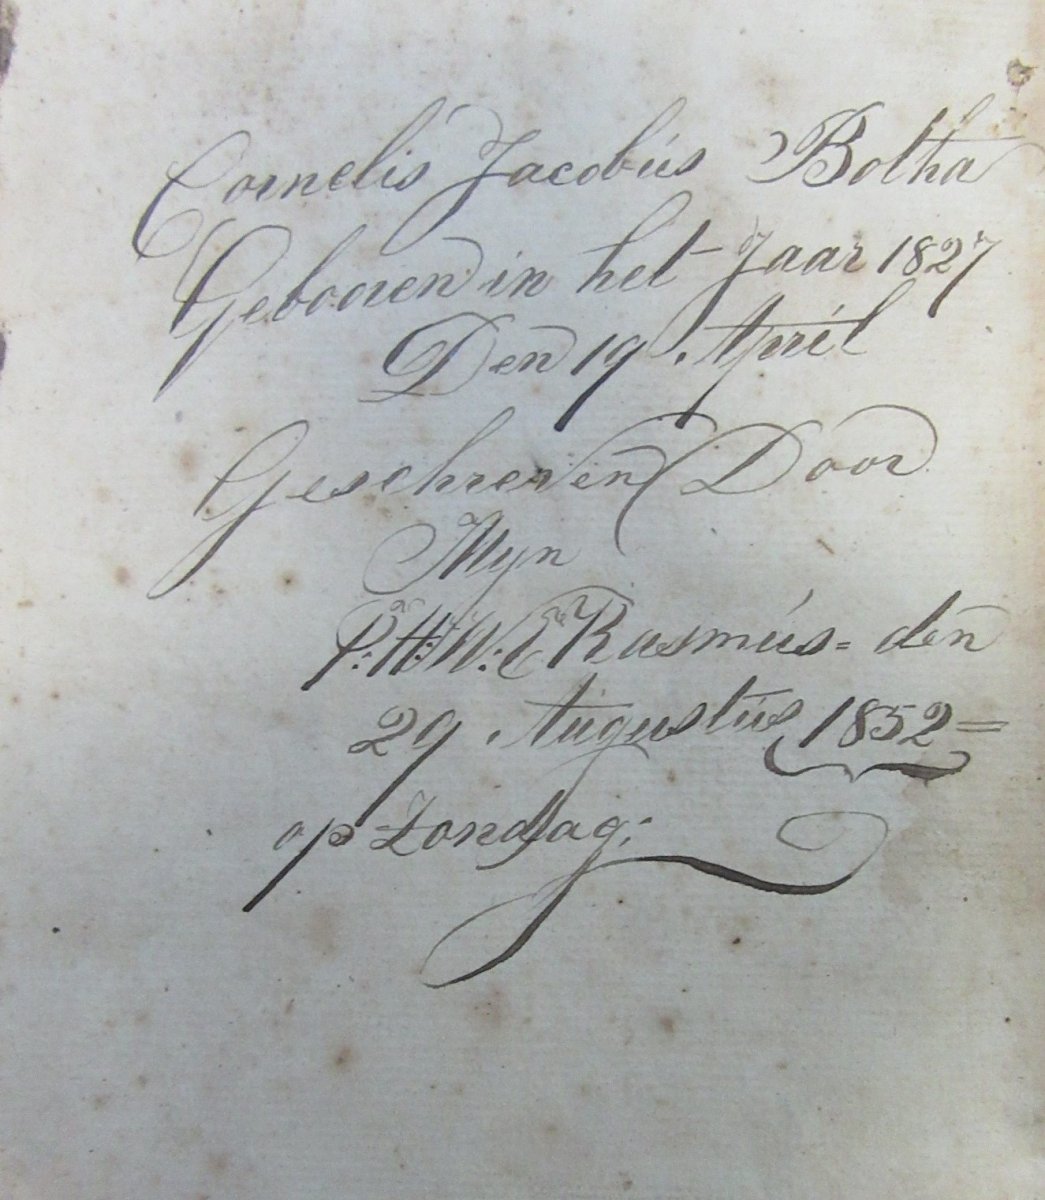 Cornelis Jacobús Botha
Gebooren in het Jaar 1827
Den 19 April
Geschreven Door
Myn
P: H: W: E Rasmús = den
29 Augustús 1852 =
op Zondag: